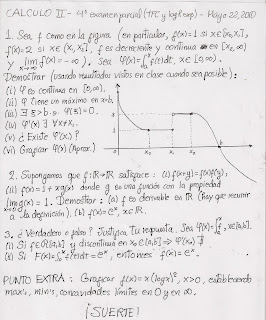 CALCULO II - 4º examen parcial (TFC y log & exp) - Mayo 22, 2010
1. Sea f como en la figura (en particular, f(x)=1 si x∈[x₁,x₂],
f(x)=2 si x∈(x₁,x₂], f es decreciente y continua en [x₂,∞)
y lim f(x)=-∞). Sea φ(x)=∫₀ˣ f(t)dt, x∈[0,∞).
x→∞
Demostrar (usando resultados vistos en clase cuando sea posible):
(i) φ es continua en [0,∞).
(ii) φ tiene un máximo en x=b.
(iii) ∃ ξ>b s.q. φ(ξ)=0.
(iv) φ'(x) ∃ ∀x≠x₁.
(v) ¿Existe φ'(x₁)?
(vi) Graficar φ(x) (Aprox.)
x₁
x₂
b
2. Supongamos que f:ℝ→ℝ satisface: (i) f(x+y)=f(x)f(y);
(ii) f(x)=1+xg(x) donde g es una función con la propiedad
lim g(x)=1. Demostrar: (a) f es derivable en ℝ (hay que recurrir
x→0
a la definición). (b) f(x)=eˣ, x∈ℝ.
3. ¿Verdadero o falso? Justifica Tu respuesta. Sea φ(x)=∫ₐˣ f, x∈[a,b].
(i) Si f∈R[a,b] y discontinua en x₀∈[a,b] ⇒ φ'(x₀) ∄
(ii) Si F(x)=∫₀ˣ f(t)dt=eˣ, entonces f(x)=eˣ.
PUNTO EXTRA: Graficar f(x)=x(log x)², x>0, estableciendo
max's, min's, concavidades límites en 0 y en ∞.
¡SUERTE!